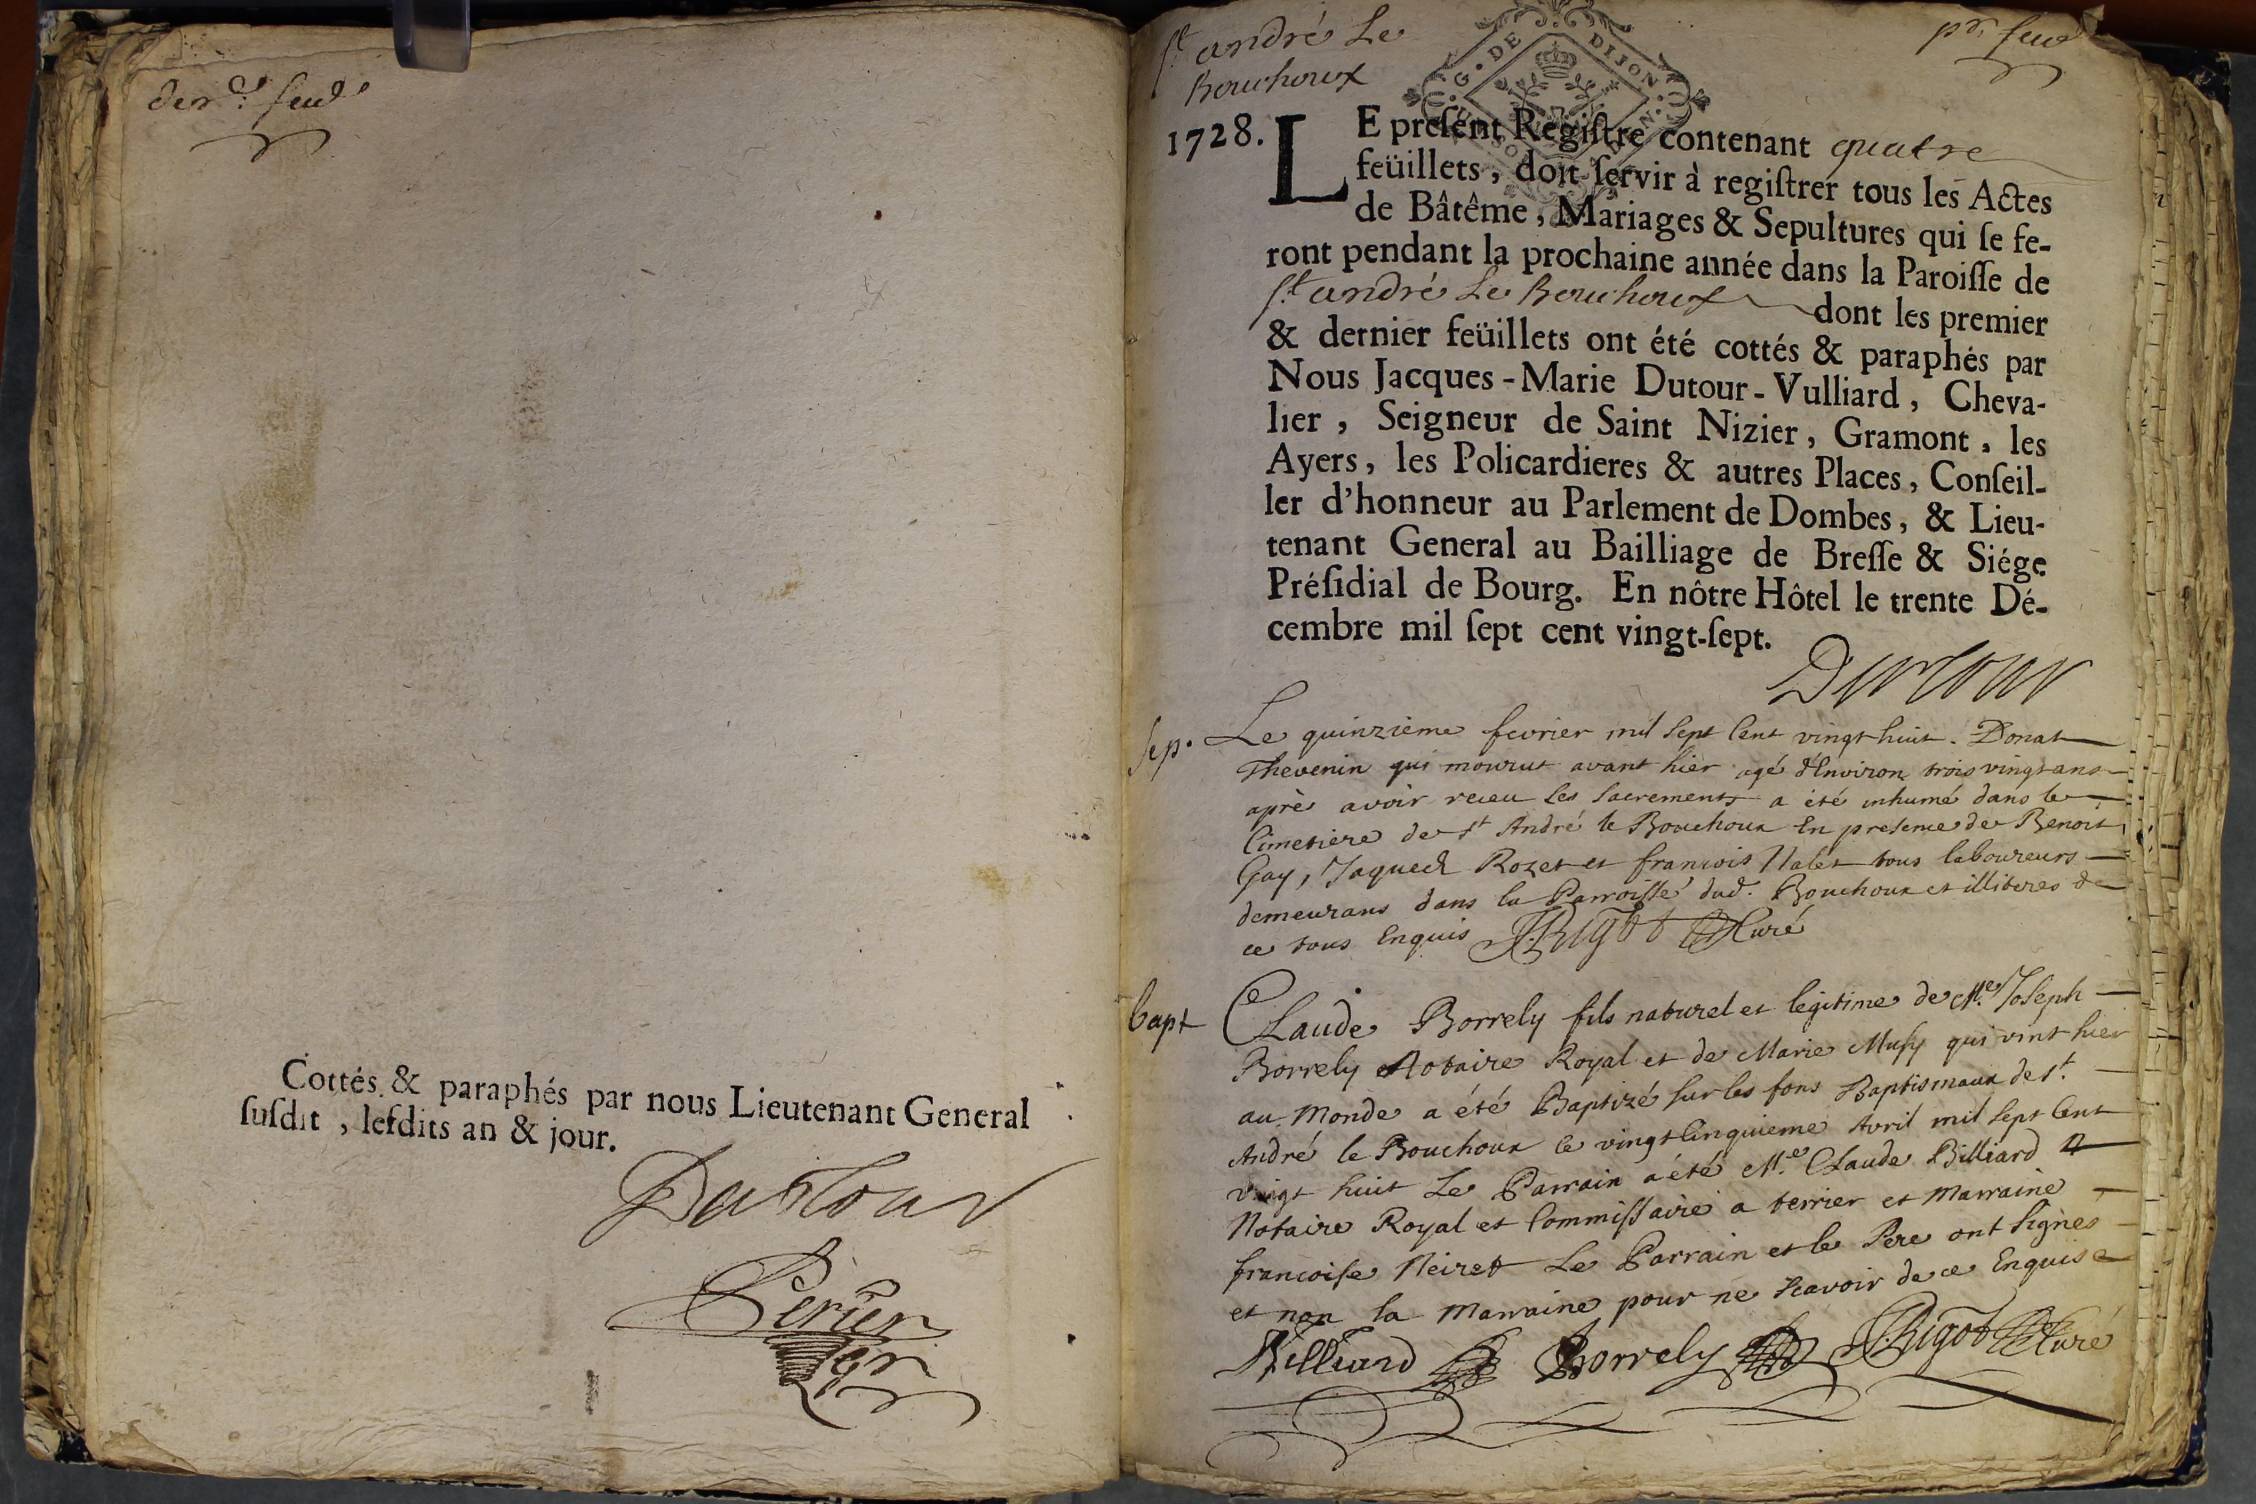 der.^e feuil^e
Cottés & paraphés par nous Lieutenant General
ſuſdit , leſdits an & jour.
Dutour
Perier
gr
S.^t andré Le
Bouchoux
p^r. feuil
G. DE DIJON
1728.
LE preſent Regiſtre contenant quatre
feüillets, doit ſervir à regiſtrer tous les Actes
de Bâtême, Mariages & Sepultures qui ſe fe-
ront pendant la prochaine année dans la Paroiſſe de
S.^t andré Le Bouchoux dont les premier
& dernier feüillets ont été cottés & paraphés par
Nous Jacques-Marie Dutour-Vulliard, Cheva-
lier, Seigneur de Saint Nizier, Gramont, les
Ayers, les Policardieres & autres Places, Conſeil-
ler d'honneur au Parlement de Dombes, & Lieu-
tenant General au Bailliage de Breſſe & Siége
Préſidial de Bourg. En nôtre Hôtel le trente Dé-
cembre mil ſept cent vingt-ſept.
Dutour
sep.
Le quinzieme fevrier mil sept Cent vingt huit. Donat
Thevenin qui mourut avant hier agé d'Environ trois vingt ans
aprés avoir receu les sacrements a été inhumé dans le
Cimetiere de s^t André le Bouchoux En presence de Benoit
Gay, Jaques Rozet et francois Nalet tous laboureurs
demeurans dans la Parroisse dud. Bouchoux et illiteres de
ce tous Enquis J. Rigot Curé
bapt
Claude Borrely fils naturel et legitime de M.^e Joseph
Borrely Notaire Royal et de Marie Musy qui vint hier
au Monde a été Baptizé sur les fons Baptismaux de s^t.
André le Bouchoux le vingt Cinquieme Avril mil sept Cent
vingt huit Le Parrain a été M.^e Claude Billiard
Notaire Royal et Commissaire a terrier et Marraine
francoise Neiret Le Parrain et le Pere ont signes
et non la Marraine pour ne scavoir de ce Enquise
Billiard Borrely J. Rigot Curé